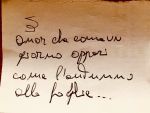 È
Amor che come un
giorno appari
come l'autunno
alle foglie...